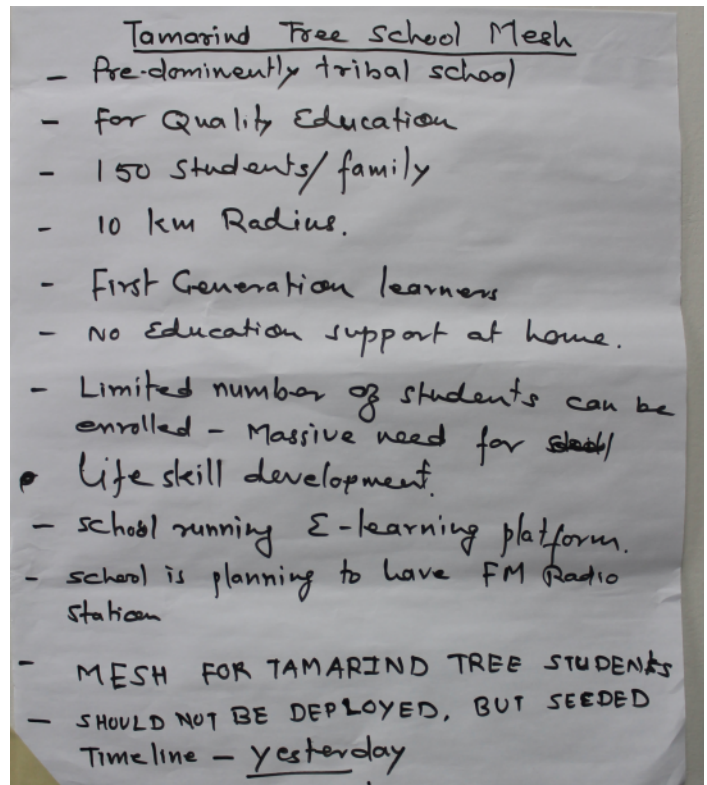 Tamarind Tree School Mesh
- Pre-dominently tribal school
- For Quality Education
- 150 Students/family
- 10 km Radius.
- First Generation learners
- No Education support at home.
- Limited number of students can be
enrolled - Massive need for
• Life skill development.
- School running E-learning platform.
- School is planning to have FM Radio
Station
- MESH FOR TAMARIND TREE STUDENTS
- SHOULD NOT BE DEPLOYED, BUT SEEDED
Timeline - yesterday